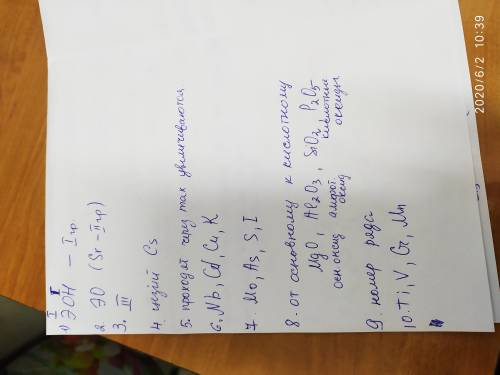 I I
1) ЭОН – I гр.
2. ЭО (Sr – II гр)
3. III
4. цезий Cs
5. проходят через max увеличиваются
6. Nb, Cd, Cu, K
7. Mo, As, S, I
8. от основному к кислотному
MgO, Al2O3, SiO2, P2O5
осн. оксид амфот. оксид кислотные оксиды
9. номер ряда
10. Ti, V, Cr, Mn
2020/6/2 10:39